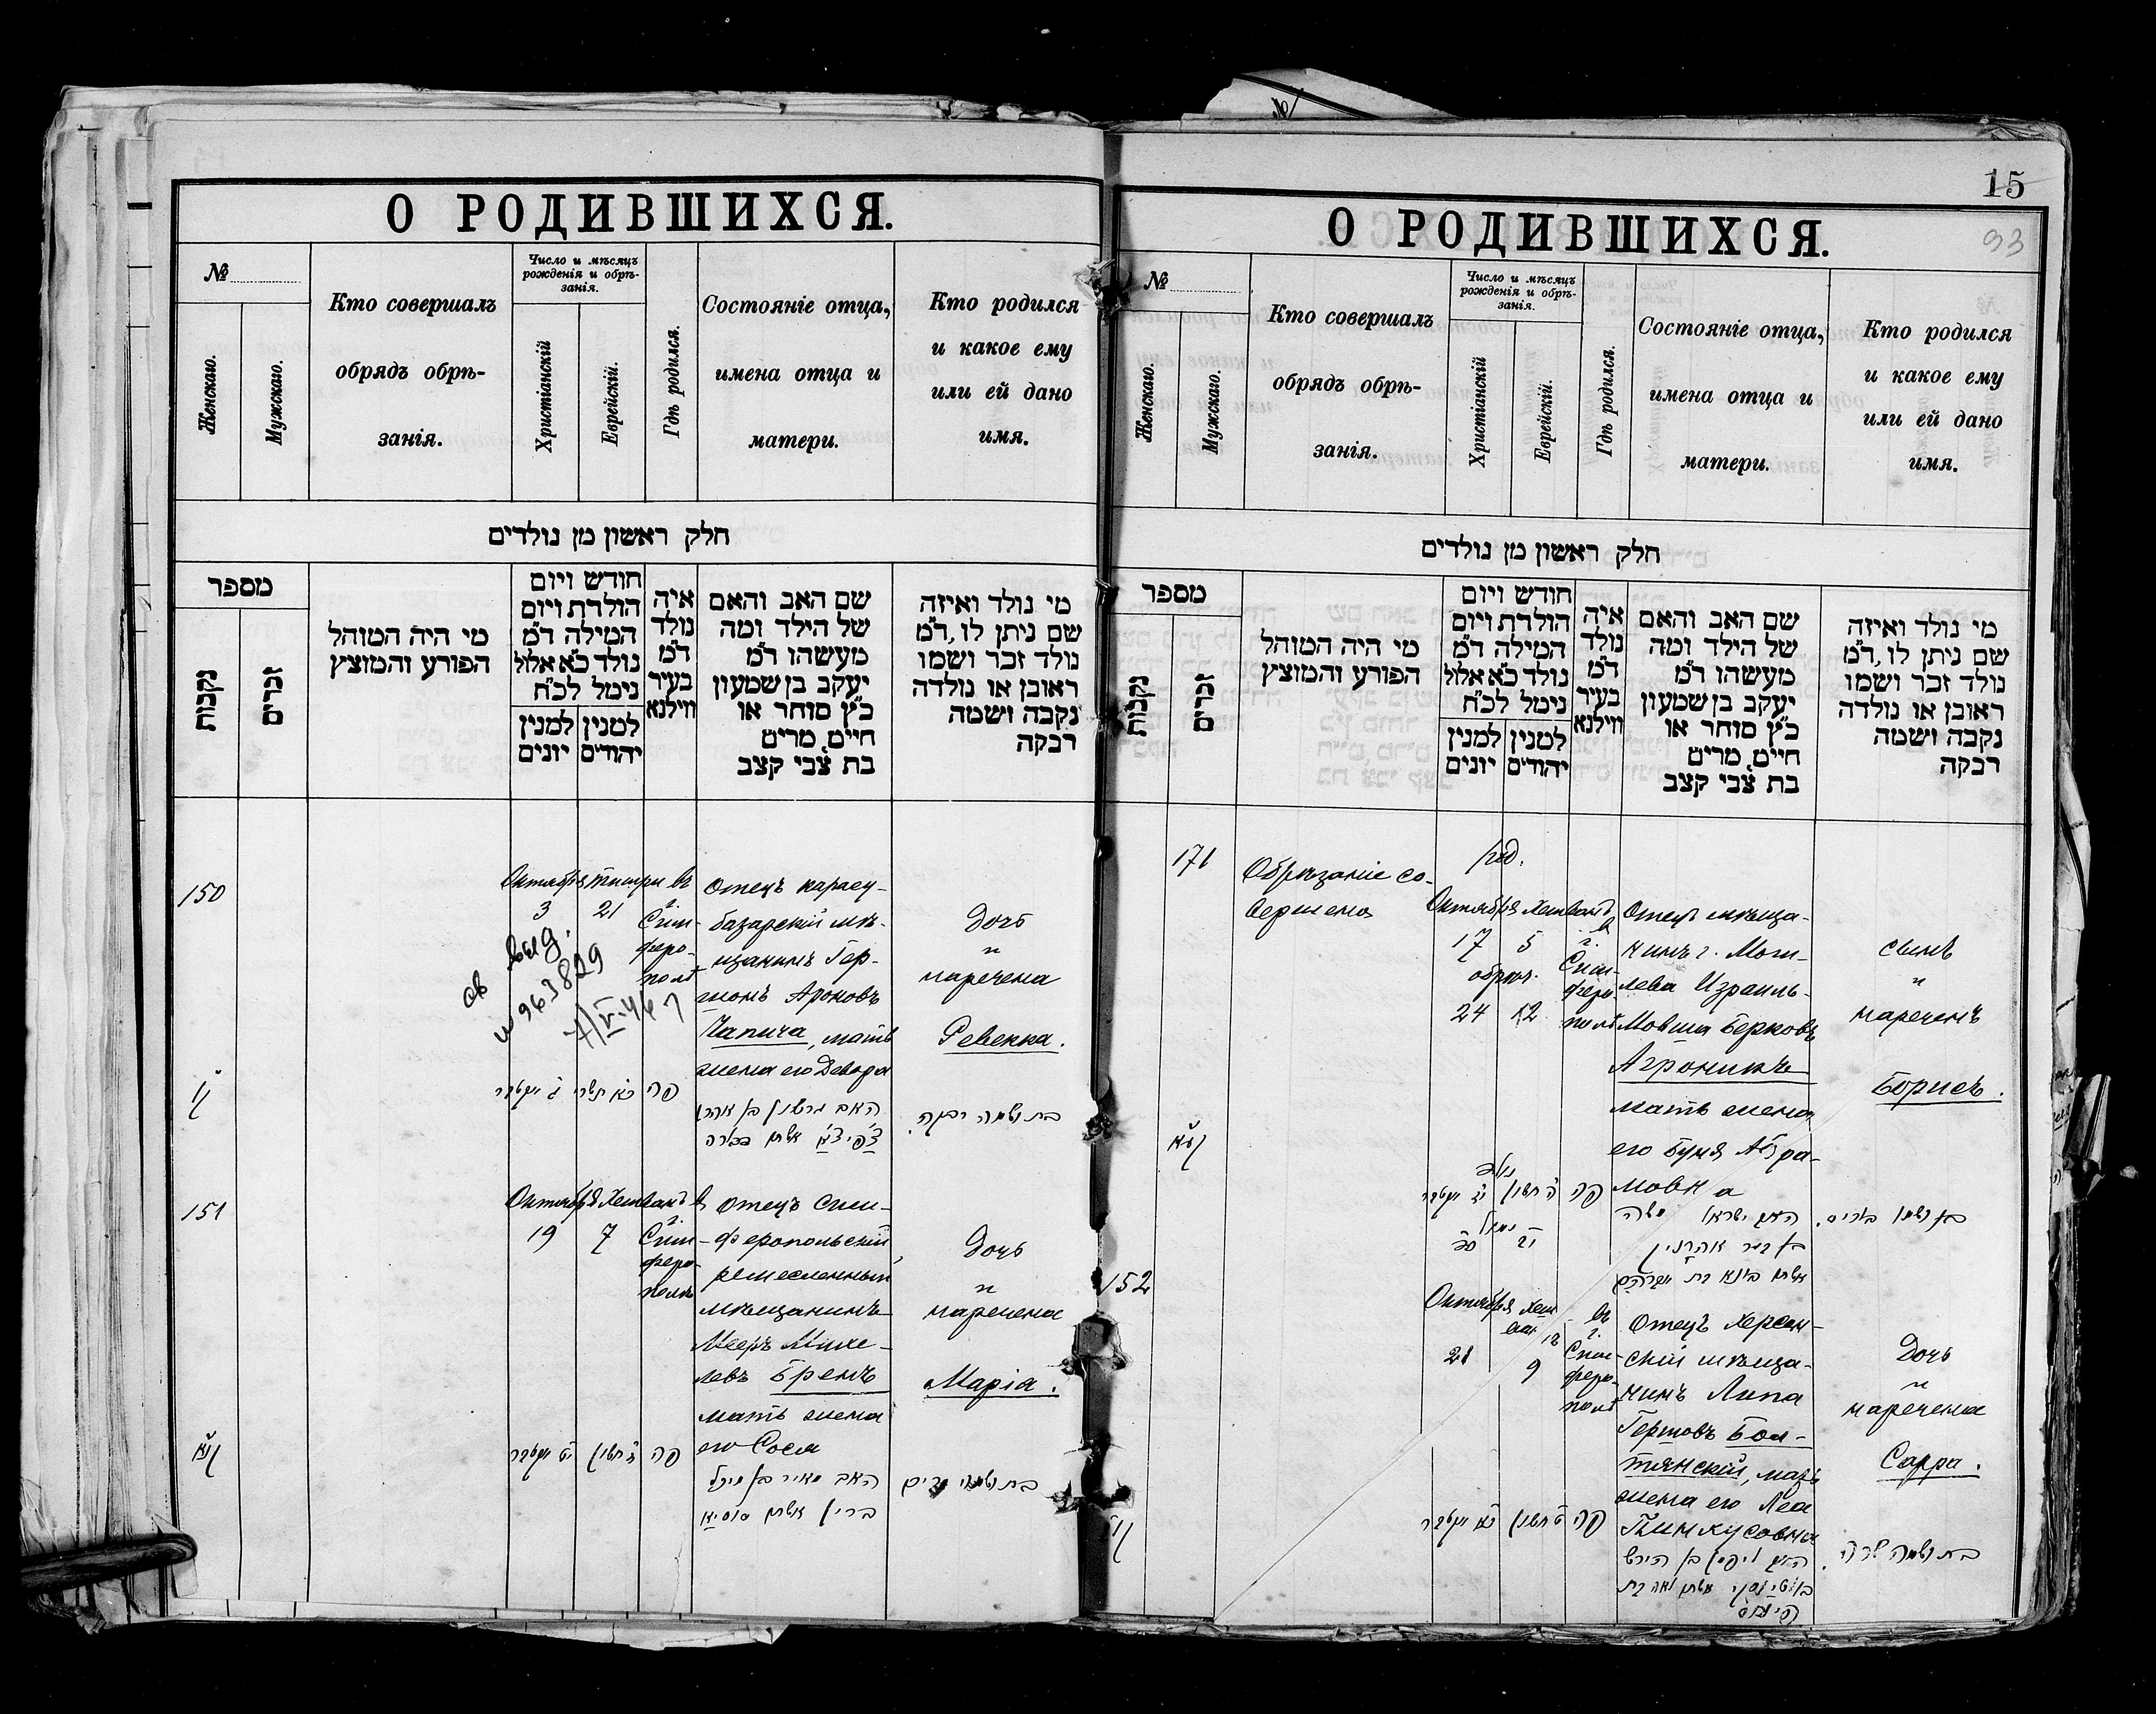 О РОДИВШИХСЯ.
№
Женскаго.
Мужскаго.
Кто совершалъ
обрядъ обрѣ-
занія.
Число и мѣсяцъ
рожденія и обрѣ-
занія.
Христіанскій
Еврейскій.
Гдѣ родился.
Состояніе отца,
имена отца и
матери.
Кто родился
и какое ему
или ей дано
имя.
חלק ראשון מן נולדים
מספר
נקבות
זכרים
מי היה המוהל
הפורע והמוצץ
חודש ויום
הולדת ויום
המילה ד״מ
נולד כ״א אלול
נימל לכ״ח
למנין יהודים
למנין יונים
איה
נולד
ד״מ
בעיר
ווילנא
שם האב והאם
של הילד ומה
מעשהו ד״מ
יעקב בן שמעון
כ״ץ סוחר או
חיים, מרים
בת צבי קצב
מי נולד ואיזה
שם ניתן לו, ד״מ
נולד זכר ושמו
ראובן או נולדה
נקבה ושמה
רבקה
150
Октября Тишри въ
3 21 г.
Сим-
феро-
полѣ
Отецъ карасу-
базарскій мѣ-
щанинъ Гер-
шонъ Ароновъ
Чапича, мать
жена его Девора
Дочь
и
наречена
Ревекка.
выд.
св
№ 963829
7/V-46 г
קנ
פה כא תשרי ג יקטבר
האב גרשון בן אהרן
בת ושמה רבקה.
151
Октября Хешванъ въ
19 7 г.
Сим-
феро-
полѣ
Отецъ сим-
феропольскій
ремесленный
мѣщанинъ
Мееръ Михе-
левъ Бренъ
мать жена
его Сося
Дочь
и
наречена
Марія.
קנא
פה ז חשון יט יקטבר
האב מאיר בן מיכל
ברין אשתו סוסיא
בת ושמה מרים
15
93
О РОДИВШИХСЯ.
№
Женскаго.
Мужскаго.
Кто совершалъ
обрядъ обрѣ-
занія.
Число и мѣсяцъ
рожденія и обрѣ-
занія.
Христіанскій
Еврейскій.
Гдѣ родился.
Состояніе отца,
имена отца и
матери.
Кто родился
и какое ему
или ей дано
имя.
חלק ראשון מן נולדים
מספר
נקבות
זכרים
מי היה המוהל
הפורע והמוצץ
חודש ויום
הולדת ויום
המילה ד״מ
נולד כ״א אלול
נימל לכ״ח
למנין יהודים
למנין יונים
איה
נולד
ד״מ
בעיר
ווילנא
שם האב והאם
של הילד ומה
מעשהו ד״מ
יעקב בן שמעון
כ״ץ סוחר או
חיים, מרים
בת צבי קצב
מי נולד ואיזה
שם ניתן לו, ד״מ
נולד זכר ושמו
ראובן או נולדה
נקבה ושמה
רבקה
171
Обрѣзаніе со-
вершено
род.
Октября Хешванъ
17 5
обрѣз.
24 12
в
г.
Сим-
феро-
полѣ
Отецъ мѣща-
нинъ г. Моги-
лева Израиль-
Мовша Берковъ
Агронинъ
мать жена
его Буня Абра-
мовна
Сынъ
и
нареченъ
Борисъ.
קעא
נולד
פה ה חשון יז יקטבר
נימול
יב כד
האב ישראל משה
בן בער אהרנין
אשתו בוניא בת אברהם
בן ושמו בוריס.
152
Октября Хеш
ванъ
21 9
въ
г.
Сим-
феро-
полѣ
Отецъ херсон-
скій мѣща-
нинъ Липа
Гершовъ Бол-
тянскій, мать
жена его Леа
Пинкусовна
Дочь
и
наречена
Сарра.
קנב
פה ט חשון כא יקטבר
האב ליפא בן הירש
אשתו לאה בת
פינחס
בת ושמה שרה